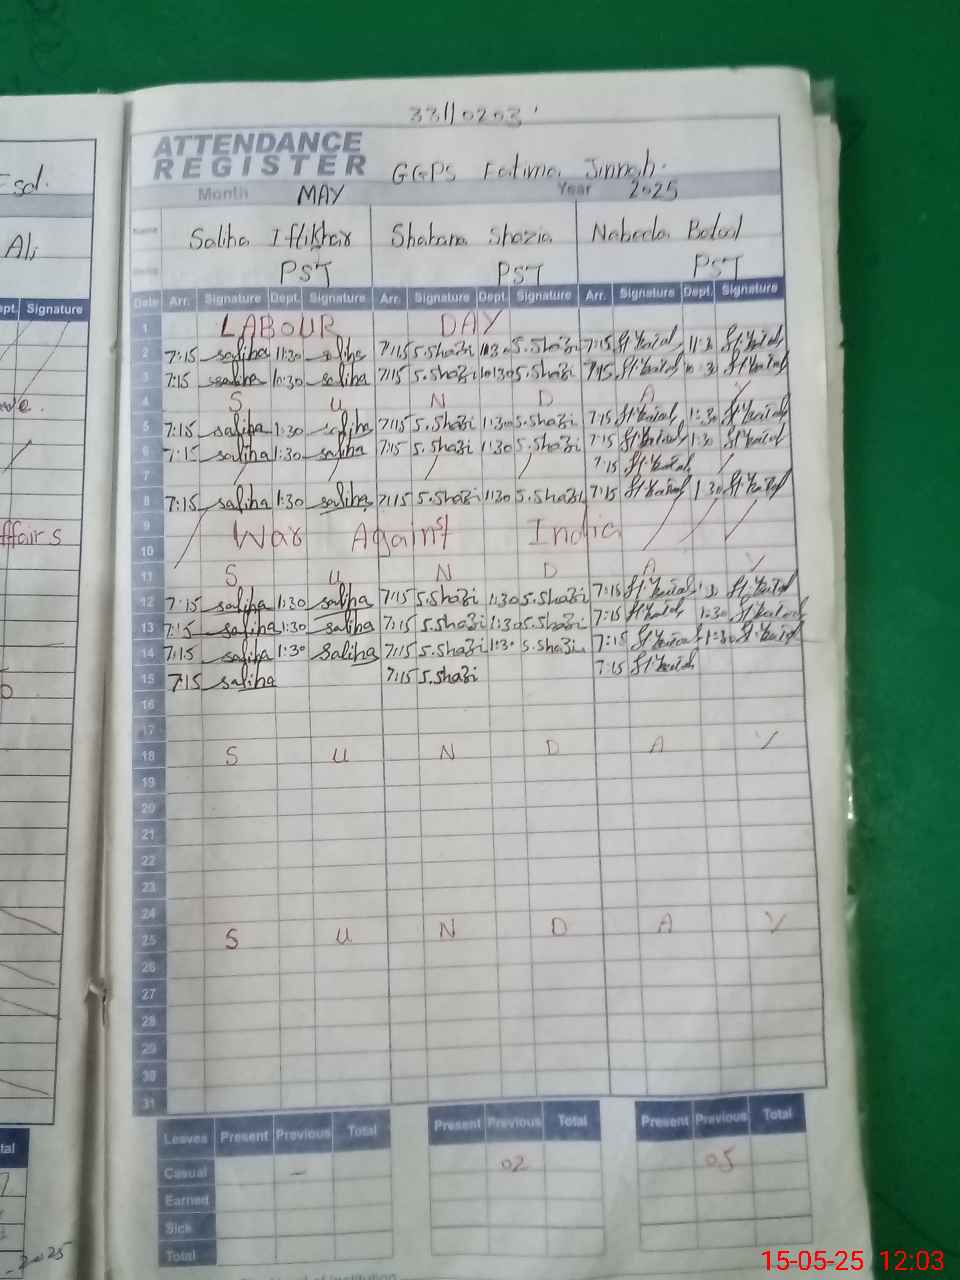 33110203
ATTENDANCE
REGISTER GGPS Fatima Jinnah.
Month MAY Year 2025
Name Saliha Iftikhar Shabana Shazia Nabeela Batool
PST PST PST
Date Arr. Signature Dept. Signature Arr. Signature Dept. Signature Arr. Signature Dept. Signature
1 LABOUR DAY
2 7:15 saliha 11:30 saliha 7:15 S.Shazi 11:30 S.Shazi 7:15
3 7:15 saliha 10:30 saliha 7:15 S.Shazi 10:30 S.Shazi 7:15 10:30
4 S U N D A Y
5 7:15 saliha 1:30 saliha 7:15 S.Shazi 1:30 S.Shazi 7:15 1:30
6 7:15 saliha 1:30 saliha 7:15 S.Shazi 1:30 S.Shazi 7:15 1:30
7 7:15
8 7:15 saliha 1:30 saliha 7:15 S.Shazi 1:30 S.Shazi 7:15 1:30
9 War Against India
10
11 S U N D A Y
12 7:15 saliha 1:30 saliha 7:15 S.Shazi 1:30 S.Shazi 7:15
13 7:15 saliha 1:30 saliha 7:15 S.Shazi 1:30 S.Shazi 7:15 1:30
14 7:15 saliha 1:30 Saliha 7:15 S.Shazi 1:30 S.Shazi 7:15 1:30
15 7:15 saliha 7:15 S.Shazi 7:15
16
17
18 S U N D A Y
19
20
21
22
23
24
25 S U N D A Y
26
27
28
29
30
31
Leaves Present Previous Total Present Previous Total Present Previous Total
Casual - 02 05
Earned
Sick
Total
Ali
Signature
ffairs
2025
15-05-25 12:03